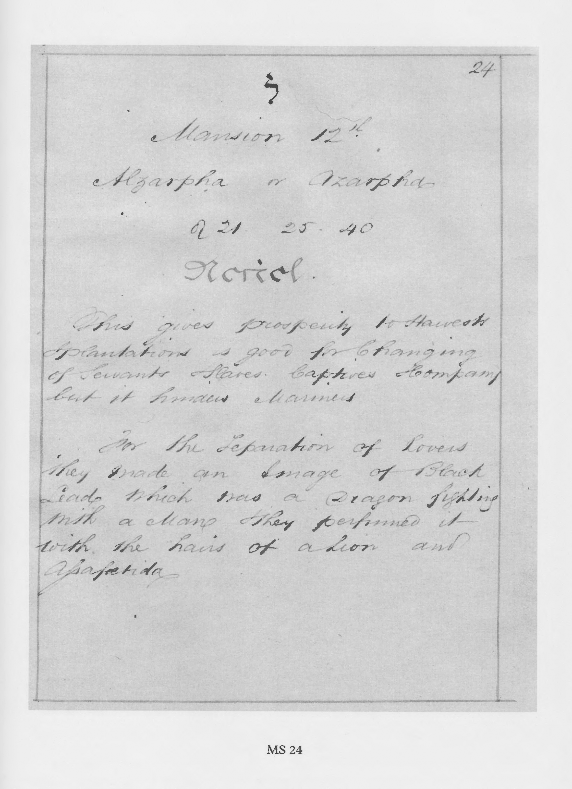 24
ל
Mansion 12th.
Alzarpha or Azarpha
Ω 21 25. 40
Neciel.
This gives prosperity to Harvests
& plantations is good for Changing
of Servants Slaves. Captives & Company
but it hinders Mariners
For the Separation of Lovers
they made an Image of Black
Lead which was a Dragon fighting
with a Man, they perfumed it
with the hairs of a Lion and
Assafetida
MS 24